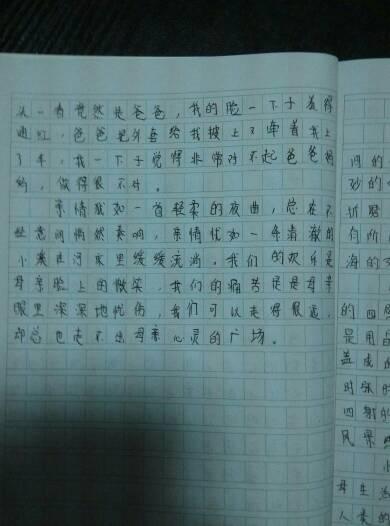 头一看竟然是爸爸，我的脸一下子羞得
通红，爸爸把外套给我披上了牵着我上
了车，我一下子觉得非常对不起爸爸妈
妈，做得很不对。
亲情犹如一首轻柔的夜曲，总在不
经意间悄然奏响，亲情犹如一条清澈的
小溪在河床里缓缓流淌。我们的欢乐是
母亲脸上的微笑，我们的痛苦是是母亲
眼里深深地忧伤，我们可以走得很远，
却总也走不出母亲心灵的广场。
河的
砂的
折路
有所
海的
的四
是用
盖成
时候
四射的
风景
母生
人类的